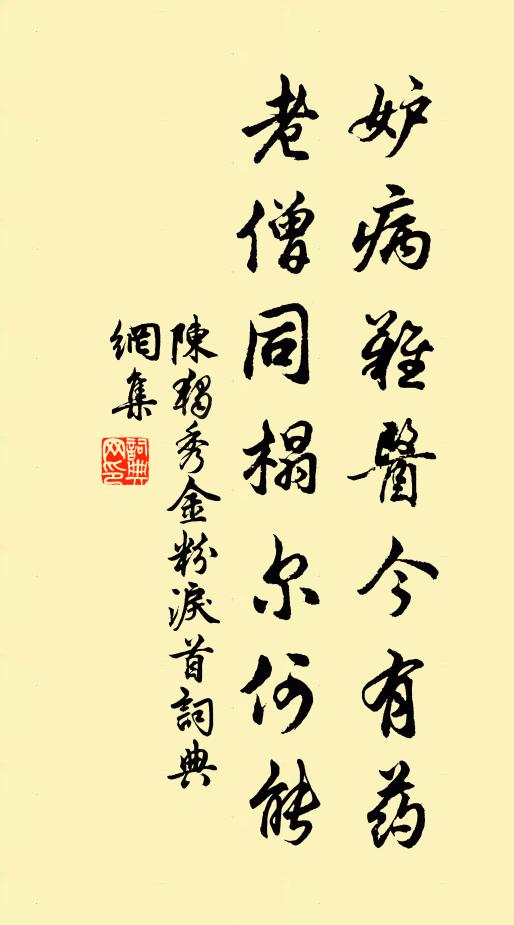 妒病難醫今有药
老僧同榻尔何能
陳獨秀金粉淚首詞典
網集
詞典網印